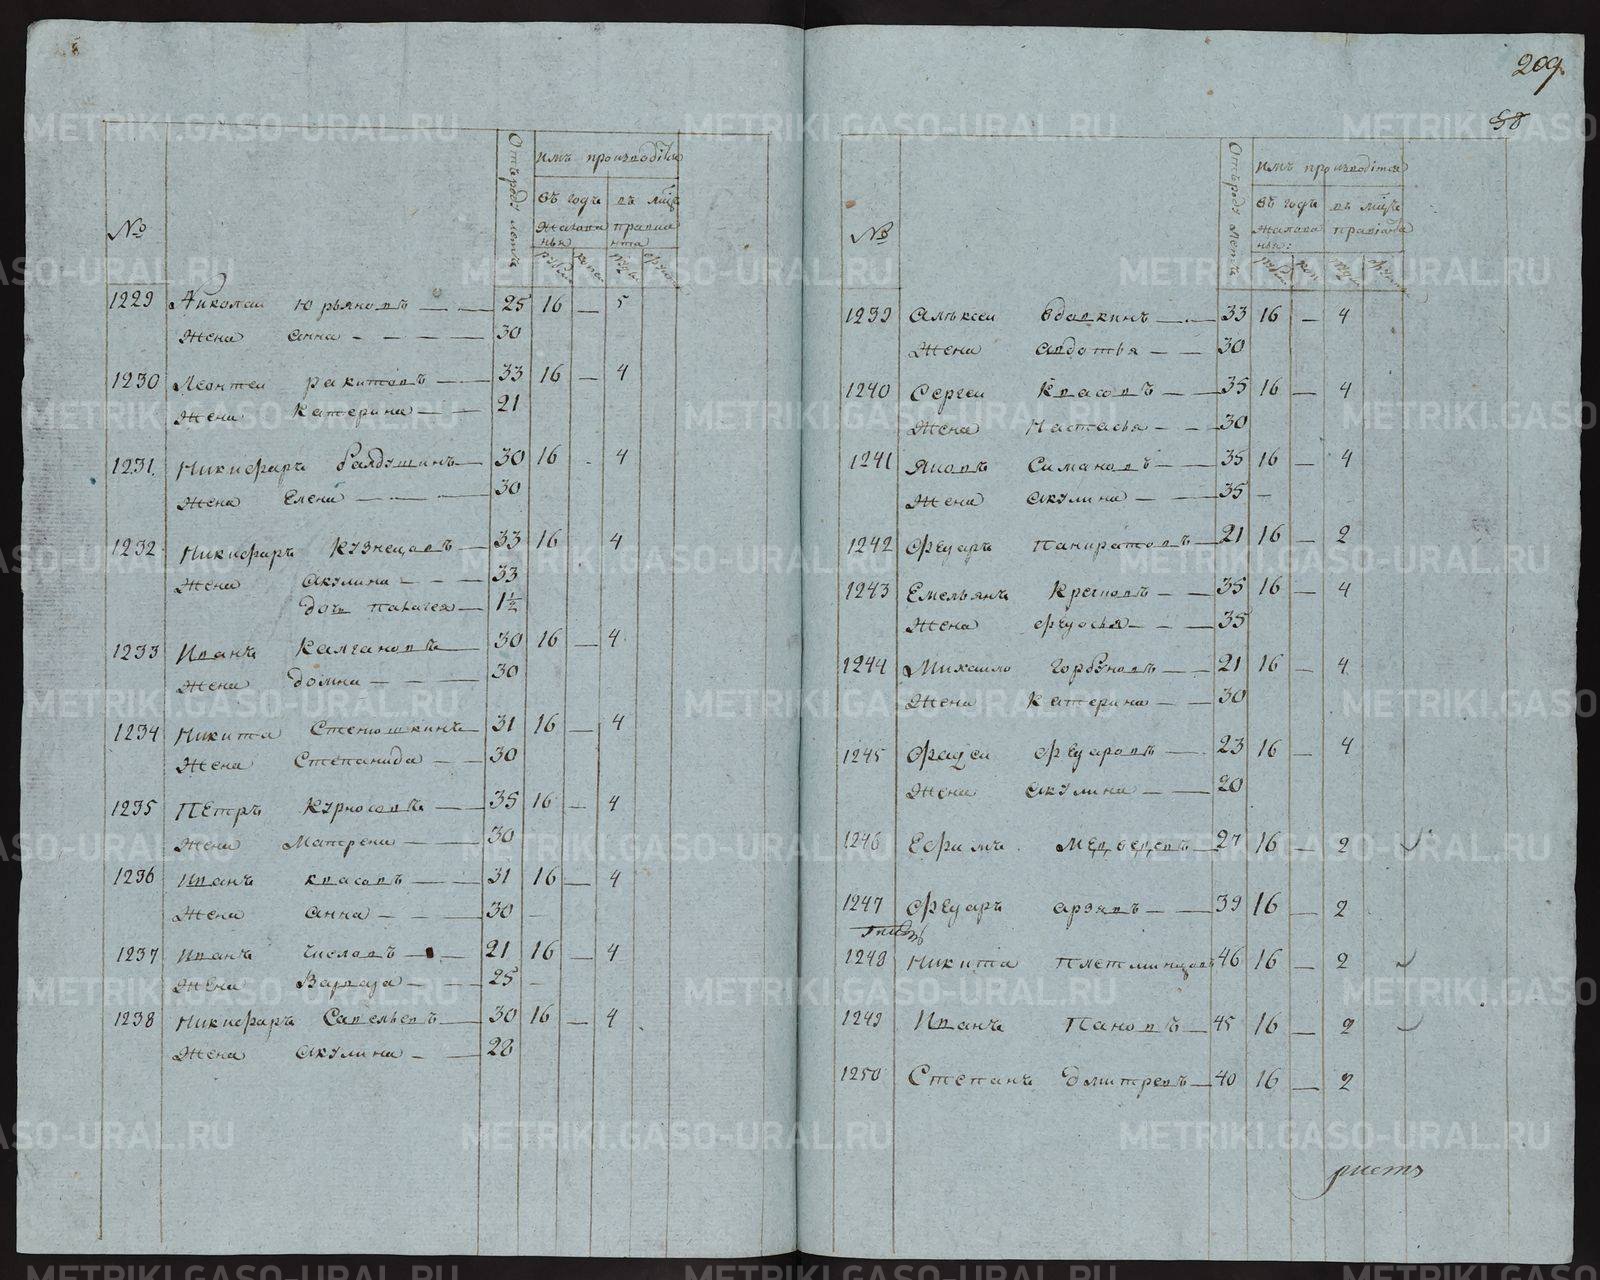 №
От роду летъ
имъ производітца
въ годъ
въ мцъ
жалова
нья
правиа
нта
рубли
1229 Николаи Юрьяновъ 25 16 — 5
Жена анна 30
1230 Леонтеи ракитовъ 33 16 — 4
Жена Катерина 21
1231 Никифаръ балдушинъ 30 16 - 4
Жена Елена 30
1232 Никифаръ кузнецовъ 33 16 4
Жена акулина 33
дочь палагея 1½
1233 Иванъ Калгановъ 30 16 — 4
Жена домна 30
1234 Никита Стенюшкинъ 31 16 — 4
Жена Степанида 30
1235 Петръ курносовъ 35 16 — 4
Жена Матрена 30
1236 Иванъ квасовъ 31 16 — 4
Жена анна 30
1237 Иванъ числовъ 21 16 — 4
Жена Варвара 25
1238 Никифаръ Савельевъ 30 16 — 4
Жена акулина 28
209
58
№
От роду летъ
имъ производітса
въ годъ
въ мцъ
жалова
нья:
правіанта
1239 Алексеи вдовкинъ 33 16 — 4
Жена авдотья 30
1240 Сергеи квасовъ 35 16 — 4
Жена Настасья 30
1241 Яковъ Симановъ 35 16 — 4
Жена акулина 35
1242 Федаръ панкратовъ 21 16 — 2
1243 Емельянъ 35 16 — 4
Жена федосья 35
1244 Михаило горбуновъ 21 16 — 4
Жена Катерина 30
1245 Фадеи Федаровъ 23 16 — 4
Жена акулина 20
1246 Ефимъ Медведевъ 27 16 — 2
1247 Федаръ арзявъ 39 16 — 2
1248 Никита плетминцовъ 46 16 — 2
1249 Иванъ Пановъ 45 16 — 2
1250 Степанъ дмитревъ 40 16 — 2